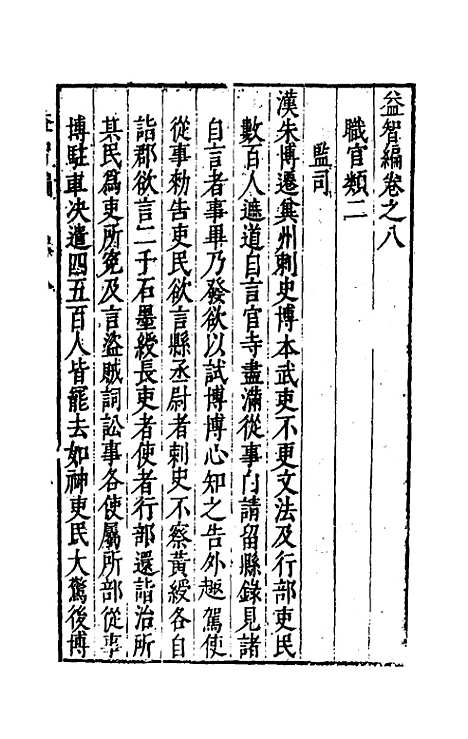 益智編卷之八
職官類二
監司
漢朱博遷兾州刺史博本武吏不更文法及行部吏民
數百人遮道自言官寺盡滿從事白請留縣錄見諸
自言者事畢乃發欲以試博博心知之告外趣駕使
從事勑告吏民欲言縣丞尉者刺史不察黃綬各自
詣郡欲言二千石墨綬長吏者使者行部還詣治所
其民爲吏所寃及言盜賊詞訟事各使屬所部從事
博駐車决遣四五百人皆罷去如神吏民大驚後博